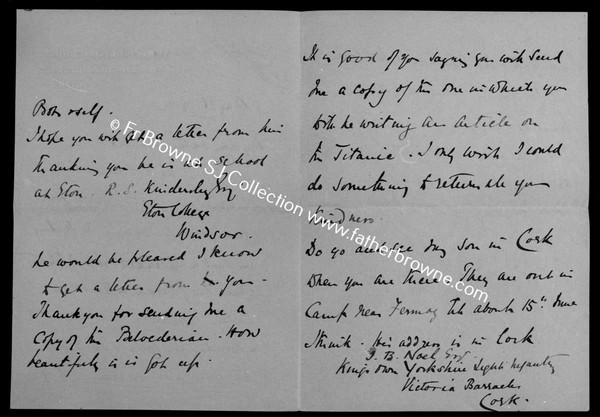 Both & self.
I hope you will get a letter from him
thanking you he is in School
at Eton. R. S. Kindersley Esq
Eton College
Windsor.
he would be pleased I know
to get a letter from you.
Thank you for sending me a
copy of the Belvederian. How
beautifully it is got up.
It is good of you saying you will send
me a copy of the one in which you
will be writing an article on
the Titanic. I only wish I could
do something to return all your
kindness.
Do go and see my son in Cork
when you are there. They are out in
Camp near Fermoy till about 15th June
I think. His address is in Cork
G. B. Noel Esq
Kings Own Yorkshire Light Infantry
Victoria Barracks
Cork.
©Fr Browne S.J. Collection
www.fatherbrowne.com